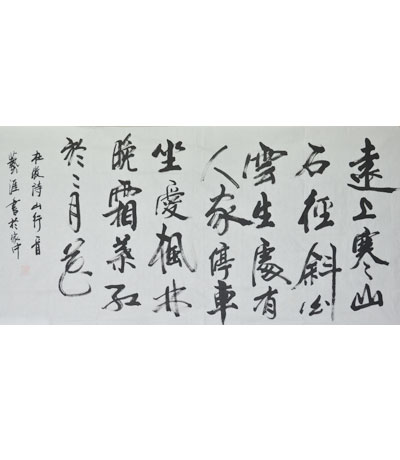 遠上寒山
石徑斜白
雲生處有
人家停車
坐愛楓林
晚霜葉紅
於二月花
杜牧詩山行一首
書於家中